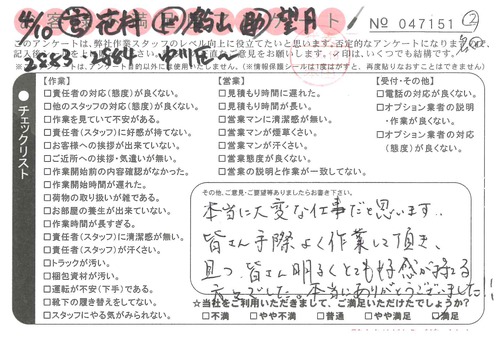 4/10 ㊢
No 047151 ②
このアンケートは、弊社作業スタッフのレベル向上に役立てたいと思います。否定的なアンケートになりま
2553 2884
【作業】
□責任者の対応(態度)が良くない。
□他のスタッフの対応(態度)が良くない。
□作業を見ていて不安がある。
□責任者(スタッフ)に好感が持てない。
□お客様への挨拶が出来ていない。
□ご近所への挨拶・気遣いが無い。
□作業開始前の内容確認がなかった。
□作業開始時間が遅れた。
□荷物の取り扱いが雑である。
□お部屋の養生が出来ていない。
□作業時間が長すぎる。
□責任者(スタッフ)に清潔感が無い。
□責任者(スタッフ)が汗くさい。
□トラックが汚い。
□梱包資材が汚い。
□運転が不安(下手)である。
□靴下の履き替えをしてない。
□スタッフにやる気がみられない。
【営業】
□見積もり時間に遅れた。
□見積もり時間が長い。
□営業マンに清潔感が無い。
□営業マンが煙草くさい。
□営業マンが汗くさい。
□営業態度が良くない。
□営業の説明と作業が一致してない。
【受付・その他】
□電話の対応が良くない。
□オプション業者の説明
・作業が良くない。
□オプション業者の対応
(態度)が良くない。
チェックリスト
その他、ご意見・ご要望等ありましたらお書き下さい。
本当に大変な仕事だと思います。
皆さん手際よく作業して頂き、
且つ皆さん明るくとても好感が持てる
方々でした。本当にありがとうございました!!
☆当社をご利用いただきまして、ご満足いただけたでしょうか?
□不満 □やや不満 □普通 □やや満足 □満足